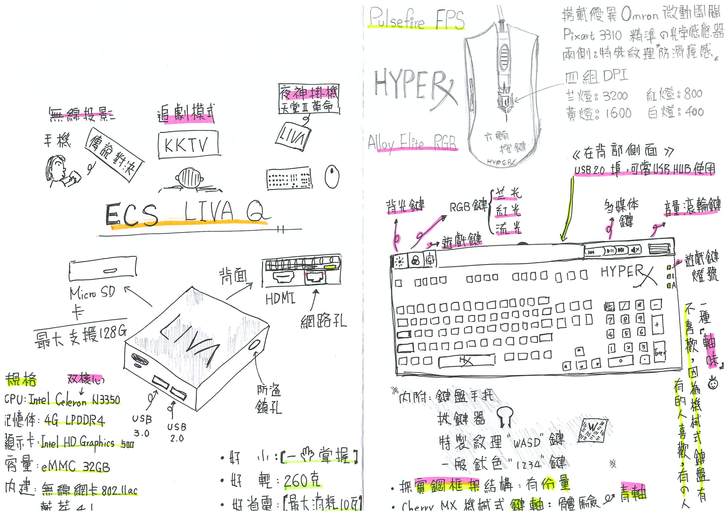 無線投影
手機
傳說對決
追劇模式
KKTV
夜神掛機
天堂II革命
LIVA
ECS LIVA Q
Micro SD
卡
最大支援128G
背面
HDMI
網路孔
LIVA
防盜
鎖孔
USB
3.0
USB
2.0
規格
双核心
CPU: Intel Celeron N3350
記憶体: 4G LPDDR4
顯示卡: Intel HD Graphics 500
容量: eMMC 32GB
內建: 無線網卡 802.11ac
藍芽 4.1
・好 小:【一手掌握】
・好 輕: 260克
・好省電:【最大消耗10瓦】
Pulsefire FPS
HYPERX
六顆
按鍵
HYPERX
搭載優異 Omron 微動開關
Pixart 3310 精準の光学感應器
兩側:特殊紋理"防滑握感"
四組DPI
兰燈: 3200 紅燈: 800
黃燈: 1600 白燈: 400
Alloy Elite RGB
《在背部側面》
USB 2.0 埠,可當USB HUB使用
背光鍵
RGB鍵
兰光
紅光
流光
遊戲鍵
多媒体
鍵
音量滾輪鍵
HYPERX
遊戲鍵
燈號
一種"軸味"
不喜歡,因為機械式鍵盤有
有的人喜歡,有の人
*內附: 鍵盤手托
拔鍵器
特製紋理"WASD"鍵
一般鈦色"1234"鍵
・採實鋼框架結構: 有份量
・Cherry MX 機械式鍵軸: 體驗 青軸